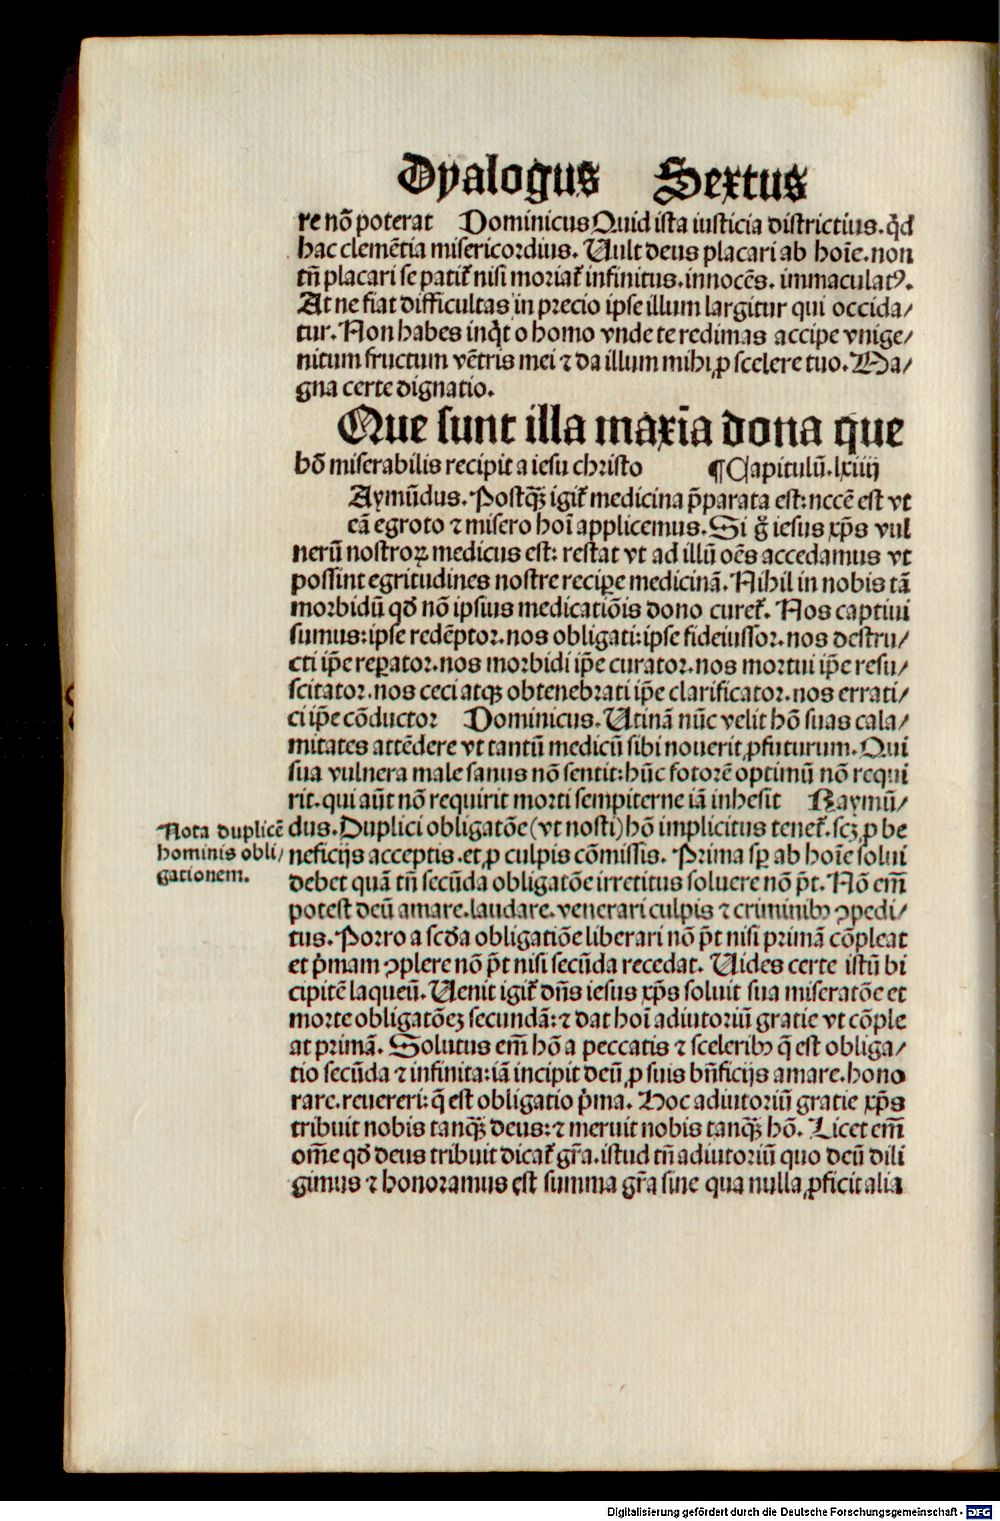 Dyalogus Sextus
re nō poterat Dominicus Quid ista iusticia districtius. qͥd
hac clemētia misericordius. Uult deus placari ab hoīe. non
tn̄ placari se patit᷑ nisi moriat᷑ infinitus. innocēs. immaculatꝰ.
At ne fiat difficultas in precio ipse illum largitur qui occida/
tur. Non habes inqͥt o homo vnde te redimas accipe vnige/
nitum fructum vētris mei ⁊ da illum mihi ꝓ scelere tuo. Ma/
gna certe dignatio.
Que sunt illa maxīa dona que
hō miserabilis recipit a iesu christo ¶Capitulū. lxiiij
Aymūdus. Postqƺ̄ igit᷑ medicina p̄parata est: necē est vt
eā egroto ⁊ misero hoī applicemus. Si g̊ iesus xp̄s vul
nerū nostroꝝ medicus est: restat vt ad illū oēs accedamus vt
possint egritudines nostre reciꝑe medicinā. Nihil in nobis tā
morbidū qđ nō ipsius medicatiōis dono curet᷑. Nos captiui
sumus: ipse redēptor. nos obligati: ipse fideiussor. nos destru/
cti ip̄e reꝑator. nos morbidi ip̄e curator. nos mortui ip̄e resu/
scitator. nos ceci atqƺ obtenebrati ip̄e clarificator. nos errati/
ci ip̄e cōductor Dominicus. Utinā nūc velit hō suas cala/
mitates attēdere vt tantū medicū sibi nouerit ꝓfuturum. Qui
sua vulnera male sanus nō sentit: hūc fotorē optimū nō requi
rit. qui aūt nō requirit morti sempiterne iā inhesit Raymū/
dus. Duplici obligatōe (vt nosti) hō implicitus tenet᷑. scƺ ꝓ be
neficijs acceptis. et ꝓ culpis cōmissis. Prima sꝑ ab hoīe solui
debet quā tn̄ secūda obligatōe irretitus soluere nō p̄t. Nō em̄
potest deū amare. laudare. venerari culpis ⁊ criminibꝰ ꝯpedi/
tus. Porro a scđa obligatiōe liberari nō p̄t nisi primā cōpleat
et pͥmam ꝯplere nō p̄t nisi secūda recedat. Uides certe istū bi
cipitē laqueū. Uenit igit᷑ dn̄s iesus xp̄s soluit sua miseratōe et
morte obligatōeƺ secundā: ⁊ dat hoī adiutoriū gratie vt cōple
at primā. Solutus em̄ hō a peccatis ⁊ sceleribꝰ q̄ est obliga/
tio secūda ⁊ infinita: iā incipit deū ꝓ suis bn̄ficijs amare. hono
rare. reuereri: q̄ est obligatio pͥma. Hoc adiutoriū gratie xp̄s
tribuit nobis tanqƺ̄ deus: ⁊ meruit nobis tanqƺ̄ hō. Licet em̄
om̄e qđ deus tribuit dicat᷑ gr̄a. istud tn̄ adiutoriū quo deū dili
gimus ⁊ honoramus est summa gr̄a sine qua nulla ꝓficit alia
Nota duplicē
hominis obli/
gationem.
Digitalisierung gefördert durch die Deutsche Forschungsgemeinschaft - DFG